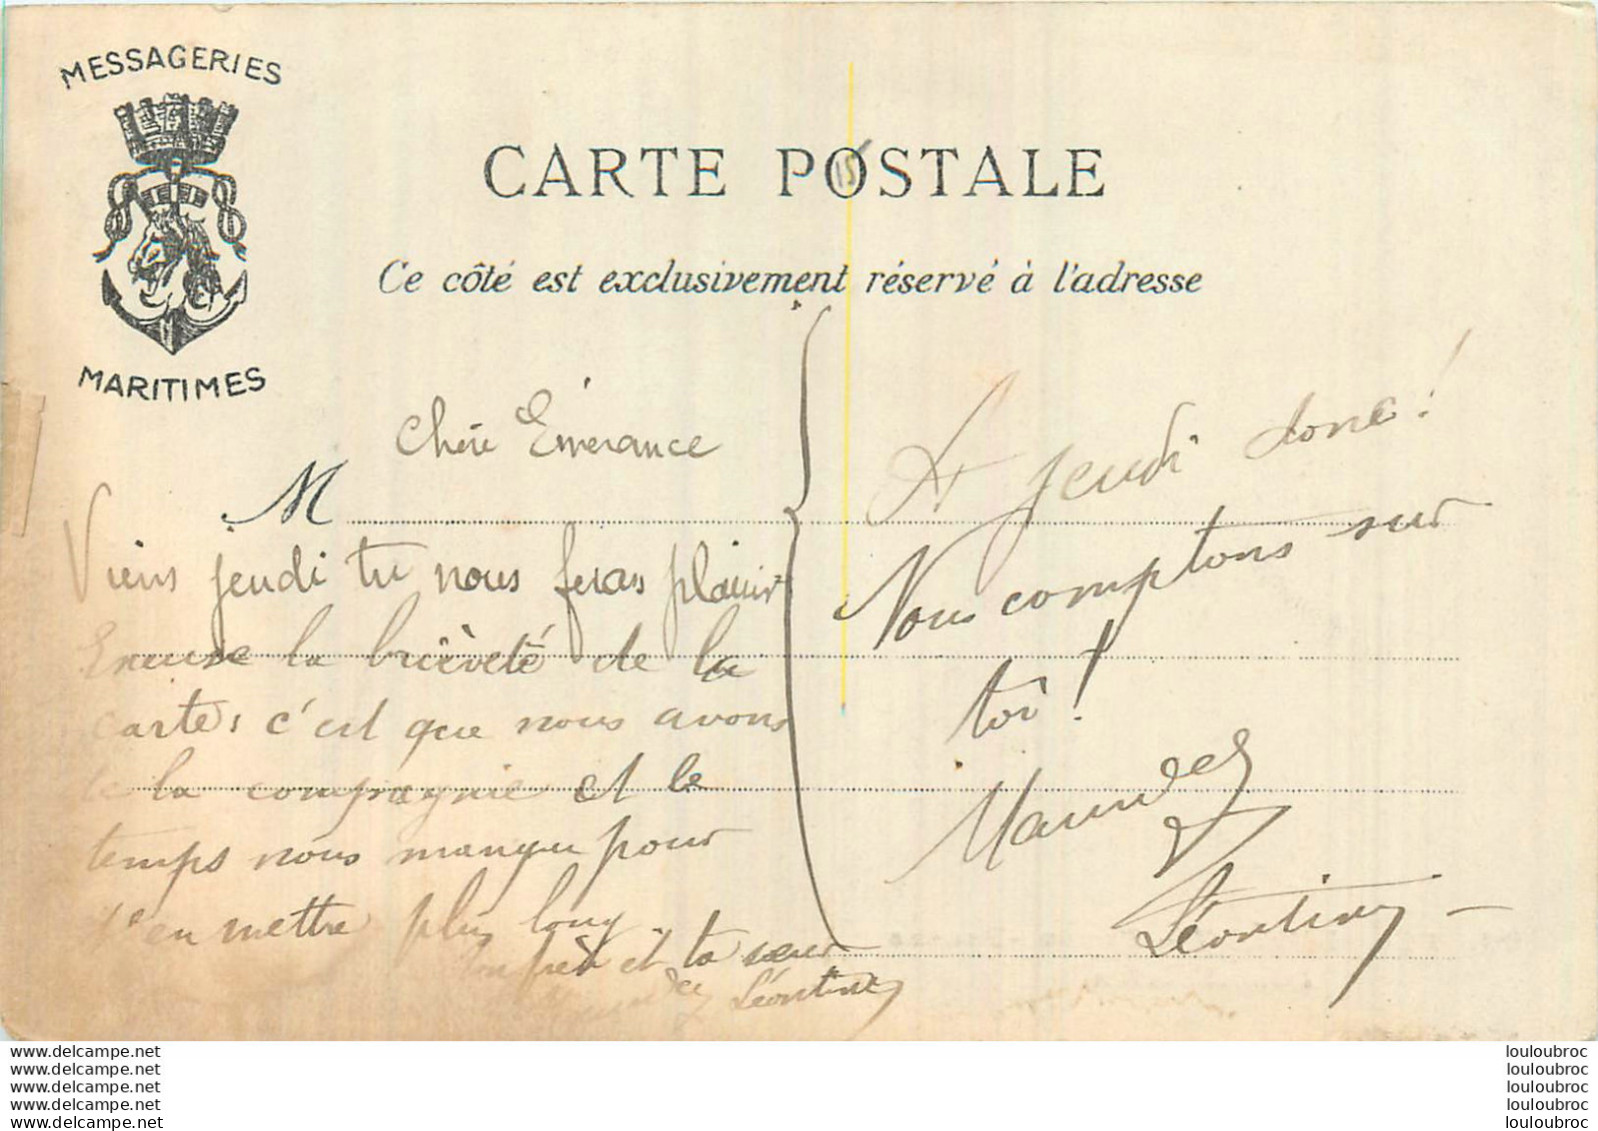 MESSAGERIES
MARITIMES
CARTE POSTALE
15
Ce côté est exclusivement réservé à l'adresse
M
Chère Emérance
Viens jeudi tu nous feras plaisir
Excuse la brièveté de la
carte, c'est que nous avons
de la compagnie et le
temps nous manque pour
t'en mettre plus long
Ton frère et ta sœur
Léontine
A jeudi donc!
Nous comptons sur
toi!
Léontine
www.delcampe.net
www.delcampe.net
www.delcampe.net
www.delcampe.net
www.delcampe.net
louloubroc
louloubroc
louloubroc
louloubroc
louloubroc